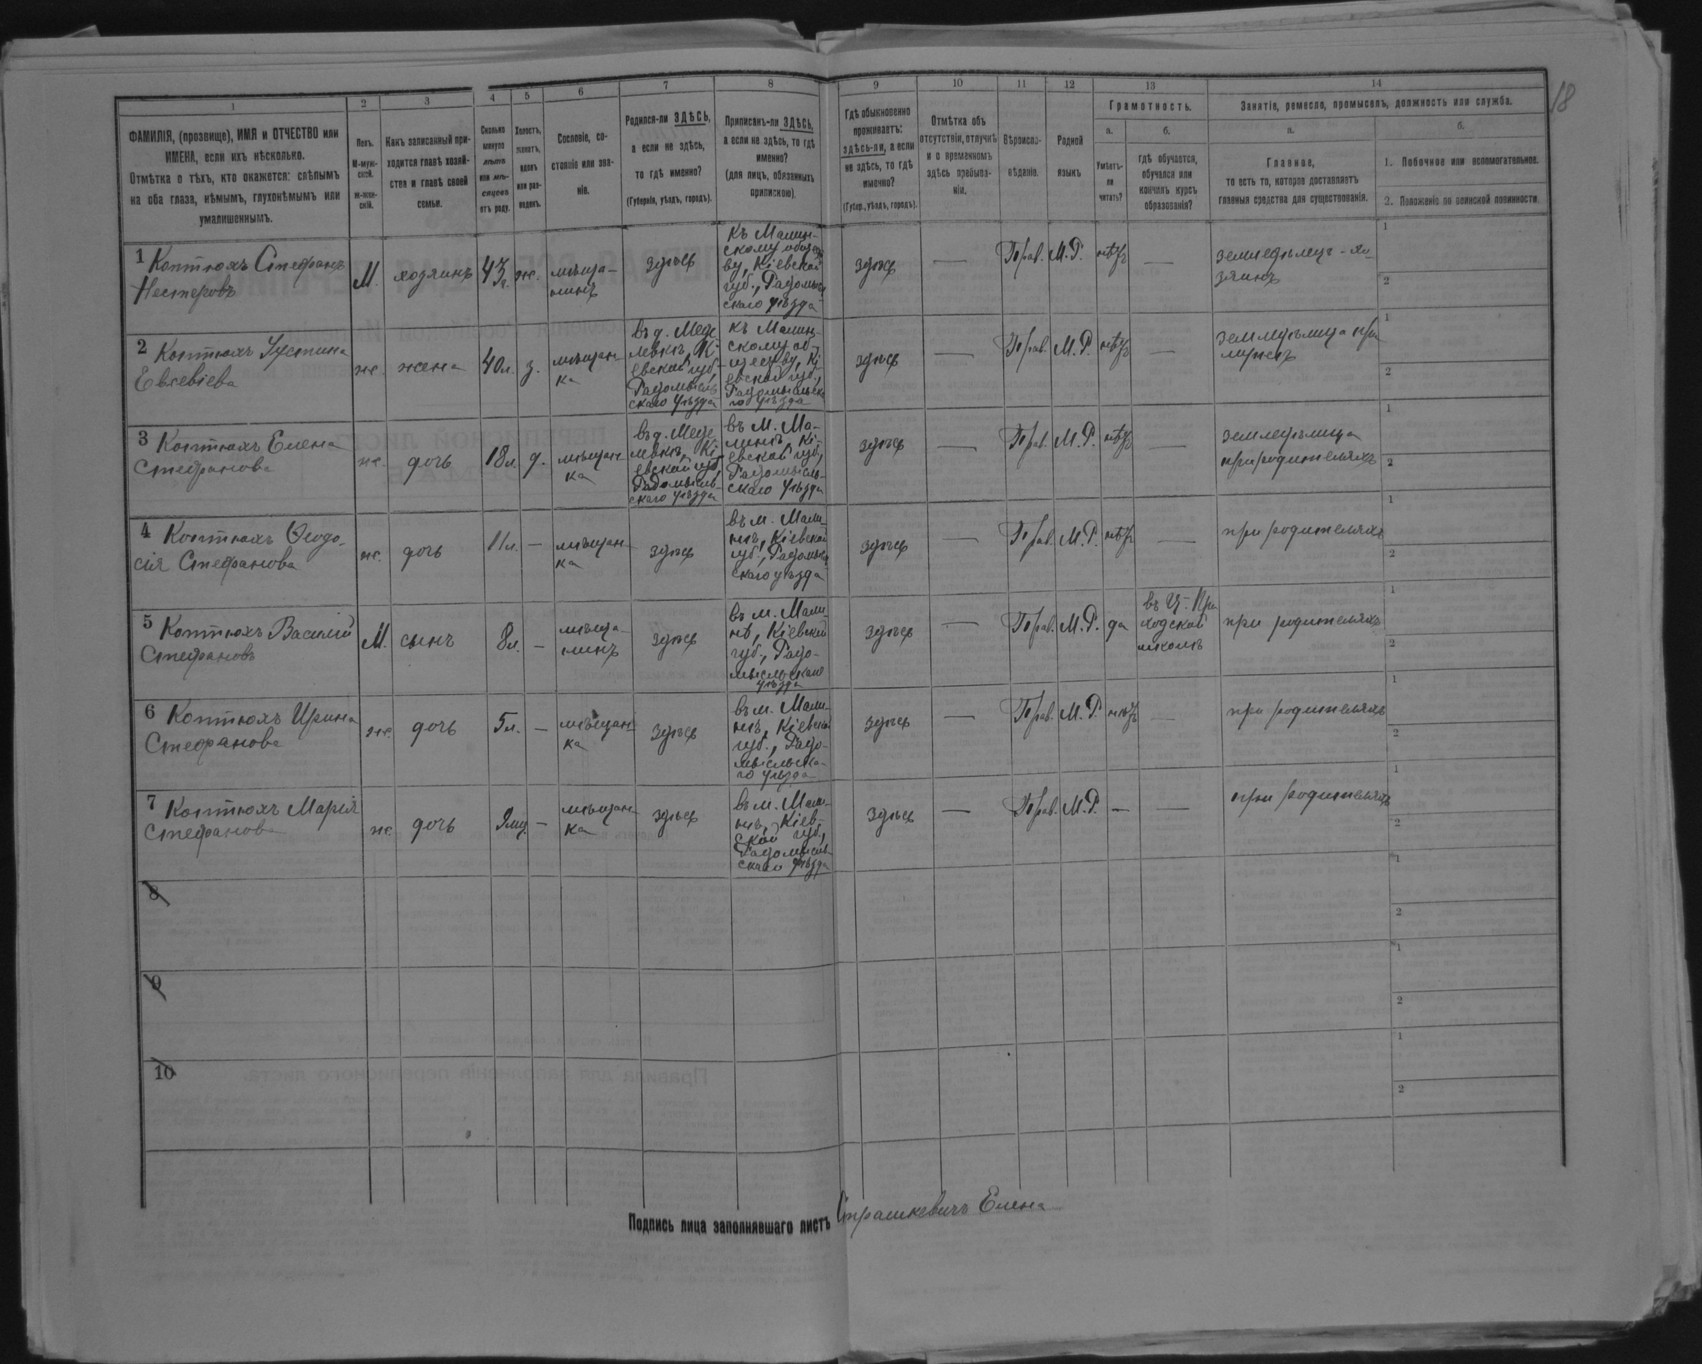 18
1 2 3 4 5 6 7 8 9 10 11 12 13 14
ФАМИЛІЯ, (прозвище), ИМЯ и ОТЧЕСТВО или
ИМЕНА, если ихъ нѣсколько.
Отмѣтка о тѣхъ, кто окажется: слѣпымъ
на оба глаза, нѣмымъ, глухонѣмымъ или
умалишеннымъ.
Полъ.
М-муж-
ской.
Ж-жен-
скій.
Какъ записанный при-
ходится главѣ хозяй-
ства и главѣ своей
семьи.
Сколько
минуло
лѣтъ
или мѣ-
сяцевъ
отъ роду.
Холостъ,
женатъ,
вдовъ
или раз-
веденъ.
Сословіе, со-
стояніе или зва-
ніе.
Родился-ли ЗДѢСЬ,
а если не здѣсь,
то гдѣ именно?
(Губернія, уѣздъ, городъ).
Приписанъ-ли ЗДѢСЬ,
а если не здѣсь, то гдѣ
именно?
(для лицъ, обязанныхъ
припискою)
Гдѣ обыкновенно
проживаетъ:
здѣсь-ли, а если
не здѣсь, то гдѣ
именно?
(Губер., уѣздъ, городъ).
Отмѣтка объ
отсутствіи, отлучкѣ
и о временномъ
здѣсь пребыва-
ніи.
Вѣроиспо-
вѣданіе.
Родной
языкъ
Грамотность.
а.
Умѣетъ-
ли
читать?
б.
гдѣ обучается,
обучался или
кончилъ курсъ
образованія?
Занятія, ремесло, промыселъ, должность или служба.
а.
Главное,
то есть то, которое доставляетъ
главныя средства для существованія.
б.
1. Побочное или вспомогательное.
2. Положеніе по воинской повинности.
1 Коптюхъ Стефанъ
Нестеровъ
М.
хозяинъ
43 л.
ж.
мѣща-
нинъ
здѣсь
къ Малин-
скому общес
ву, Кіевской
губ., Радомысл
скаго уѣзда
здѣсь
—
Прав.
М.Р.
нѣтъ
земледѣлец - хо
зяинъ
1
2
2 Коптюхъ Устина
Евсевіева
ж.
жена
40 л.
з.
мѣщан-
ка
въ д. Меде
левкѣ, Кі
евской губ.,
Радомысль
скаго уѣзда
къ Малин-
скому об-
ществу, Кі
евской губ.,
Радомысльска
го уѣзда
здѣсь
—
Прав.
М.Р.
нѣтъ
—
земледѣлица при
мужѣ
1
2
3 Коптюхъ Елена
Стефанова
ж.
дочь
18 л.
д.
мѣщан-
ка
въ д. Меде
левкѣ, Кі
евской губ.
Радомысль-
скаго уѣзда
въ м. Ма-
линѣ, Кі-
евской губ.,
Радомысль-
скаго уѣзда
здѣсь
—
Прав.
М.Р.
нѣтъ
—
земледѣлица
при родителяхъ
1
2
4 Коптюхъ Ѳеодо-
сія Стефанова
ж.
дочь
11 л.
—
мѣщан-
ка
здѣсь
въ м. Мали-
нѣ, Кіевской
губ., Радомысл
скаго уѣзда
здѣсь
—
Прав.
М.Р.
нѣтъ
—
при родителяхъ
1
2
5 Коптюхъ Василій
Стефановъ
М.
сынъ
8 л.
—
мѣща-
нинъ
здѣсь
въ м. Мали
нѣ, Кіевской
губ., Радо-
мысльскаго
уѣзда
здѣсь
—
Прав.
М.Р.
да
въ Ц.-При
ходской
школѣ
при родителяхъ
1
2
6 Коптюхъ Ирина
Стефанова
ж.
дочь
5 л.
—
мѣщан-
ка
здѣсь
въ м. Мали-
нѣ, Кіевской
губ., Радо-
мысльска-
го уѣзда
здѣсь
—
Прав.
М.Р.
нѣтъ
—
при родителяхъ
1
2
7 Коптюхъ Марія
Стефанова
ж.
дочь
9 мц.
—
мѣщан-
ка
здѣсь
въ м. Мали-
нѣ, Кіев-
ской губ.,
Радомысль-
скаго уѣзда
здѣсь
—
Прав.
М.Р.
—
—
при родителяхъ
1
2
8
1
2
9
1
2
10
1
2
Подпись лица заполнявшаго листъ Страшкевичъ Елена